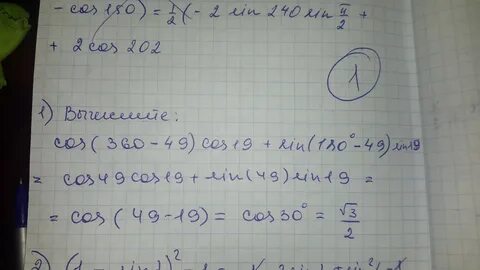 - cos 180) = 1/2 (- 2 sin 240 sin π/2 +
+ 2 cos 202
1
1) Вычислите:
cos(360-49) cos19 + sin(180°-49) sin19
= cos49 cos19 + sin(49) sin19 =
= cos(49-19) = cos30° = √3/2
2)